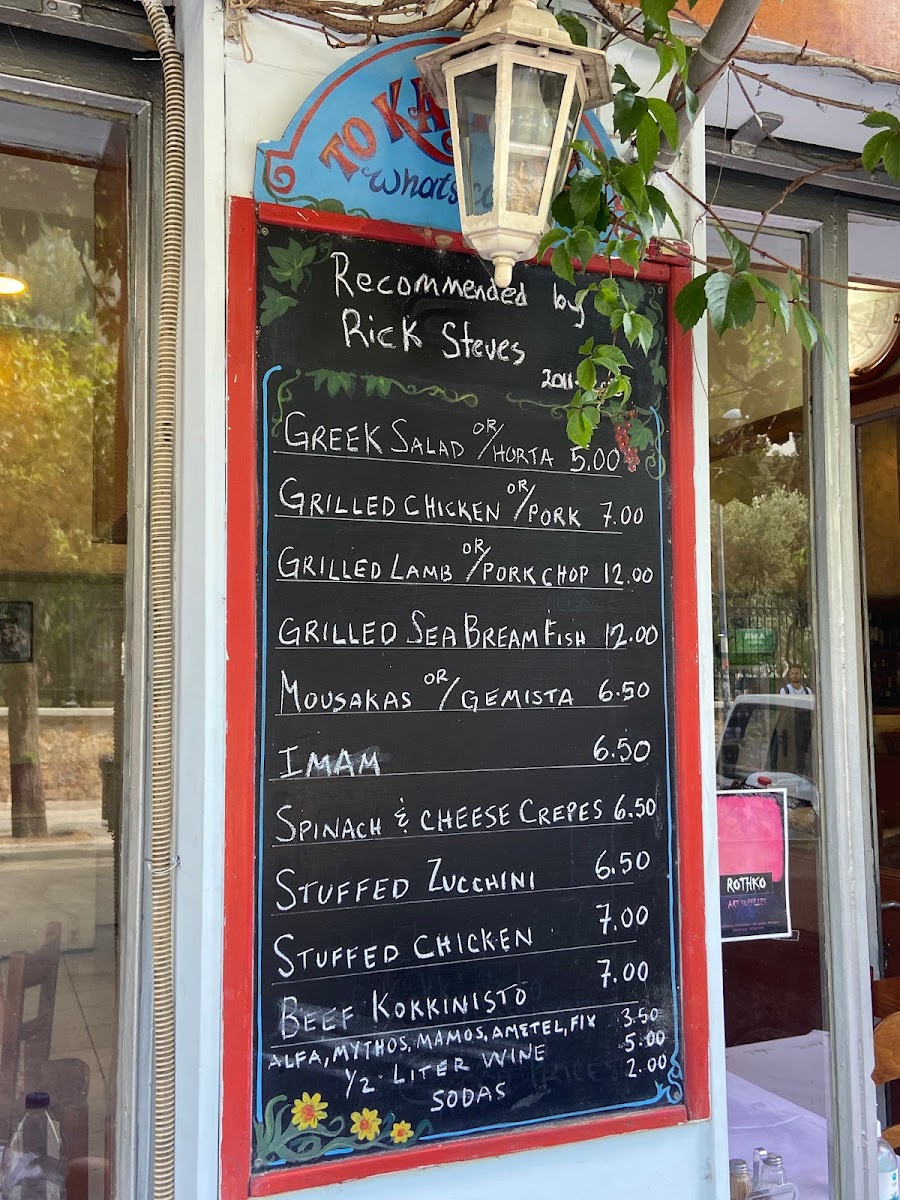 TO
Recommended by
Rick Steves
2011
GREEK SALAD OR/HORTA 5.00
GRILLED CHICKEN OR/PORK 7.00
GRILLED LAMB OR/PORK CHOP 12.00
GRILLED SEA BREAM FISH 12.00
MOUSAKAS OR/GEMISTA 6.50
IMAM 6.50
SPINACH & CHEESE CREPES 6.50
STUFFED ZUCCHINI 6.50
STUFFED CHICKEN 7.00
BEEF KOKKINISTO 7.00
ALFA, MYTHOS, MAMOS, AMSTEL, FIX 3.50
1/2 LITER WINE 5.00
SODAS 2.00
ROTHKO
ART SUPPLIES